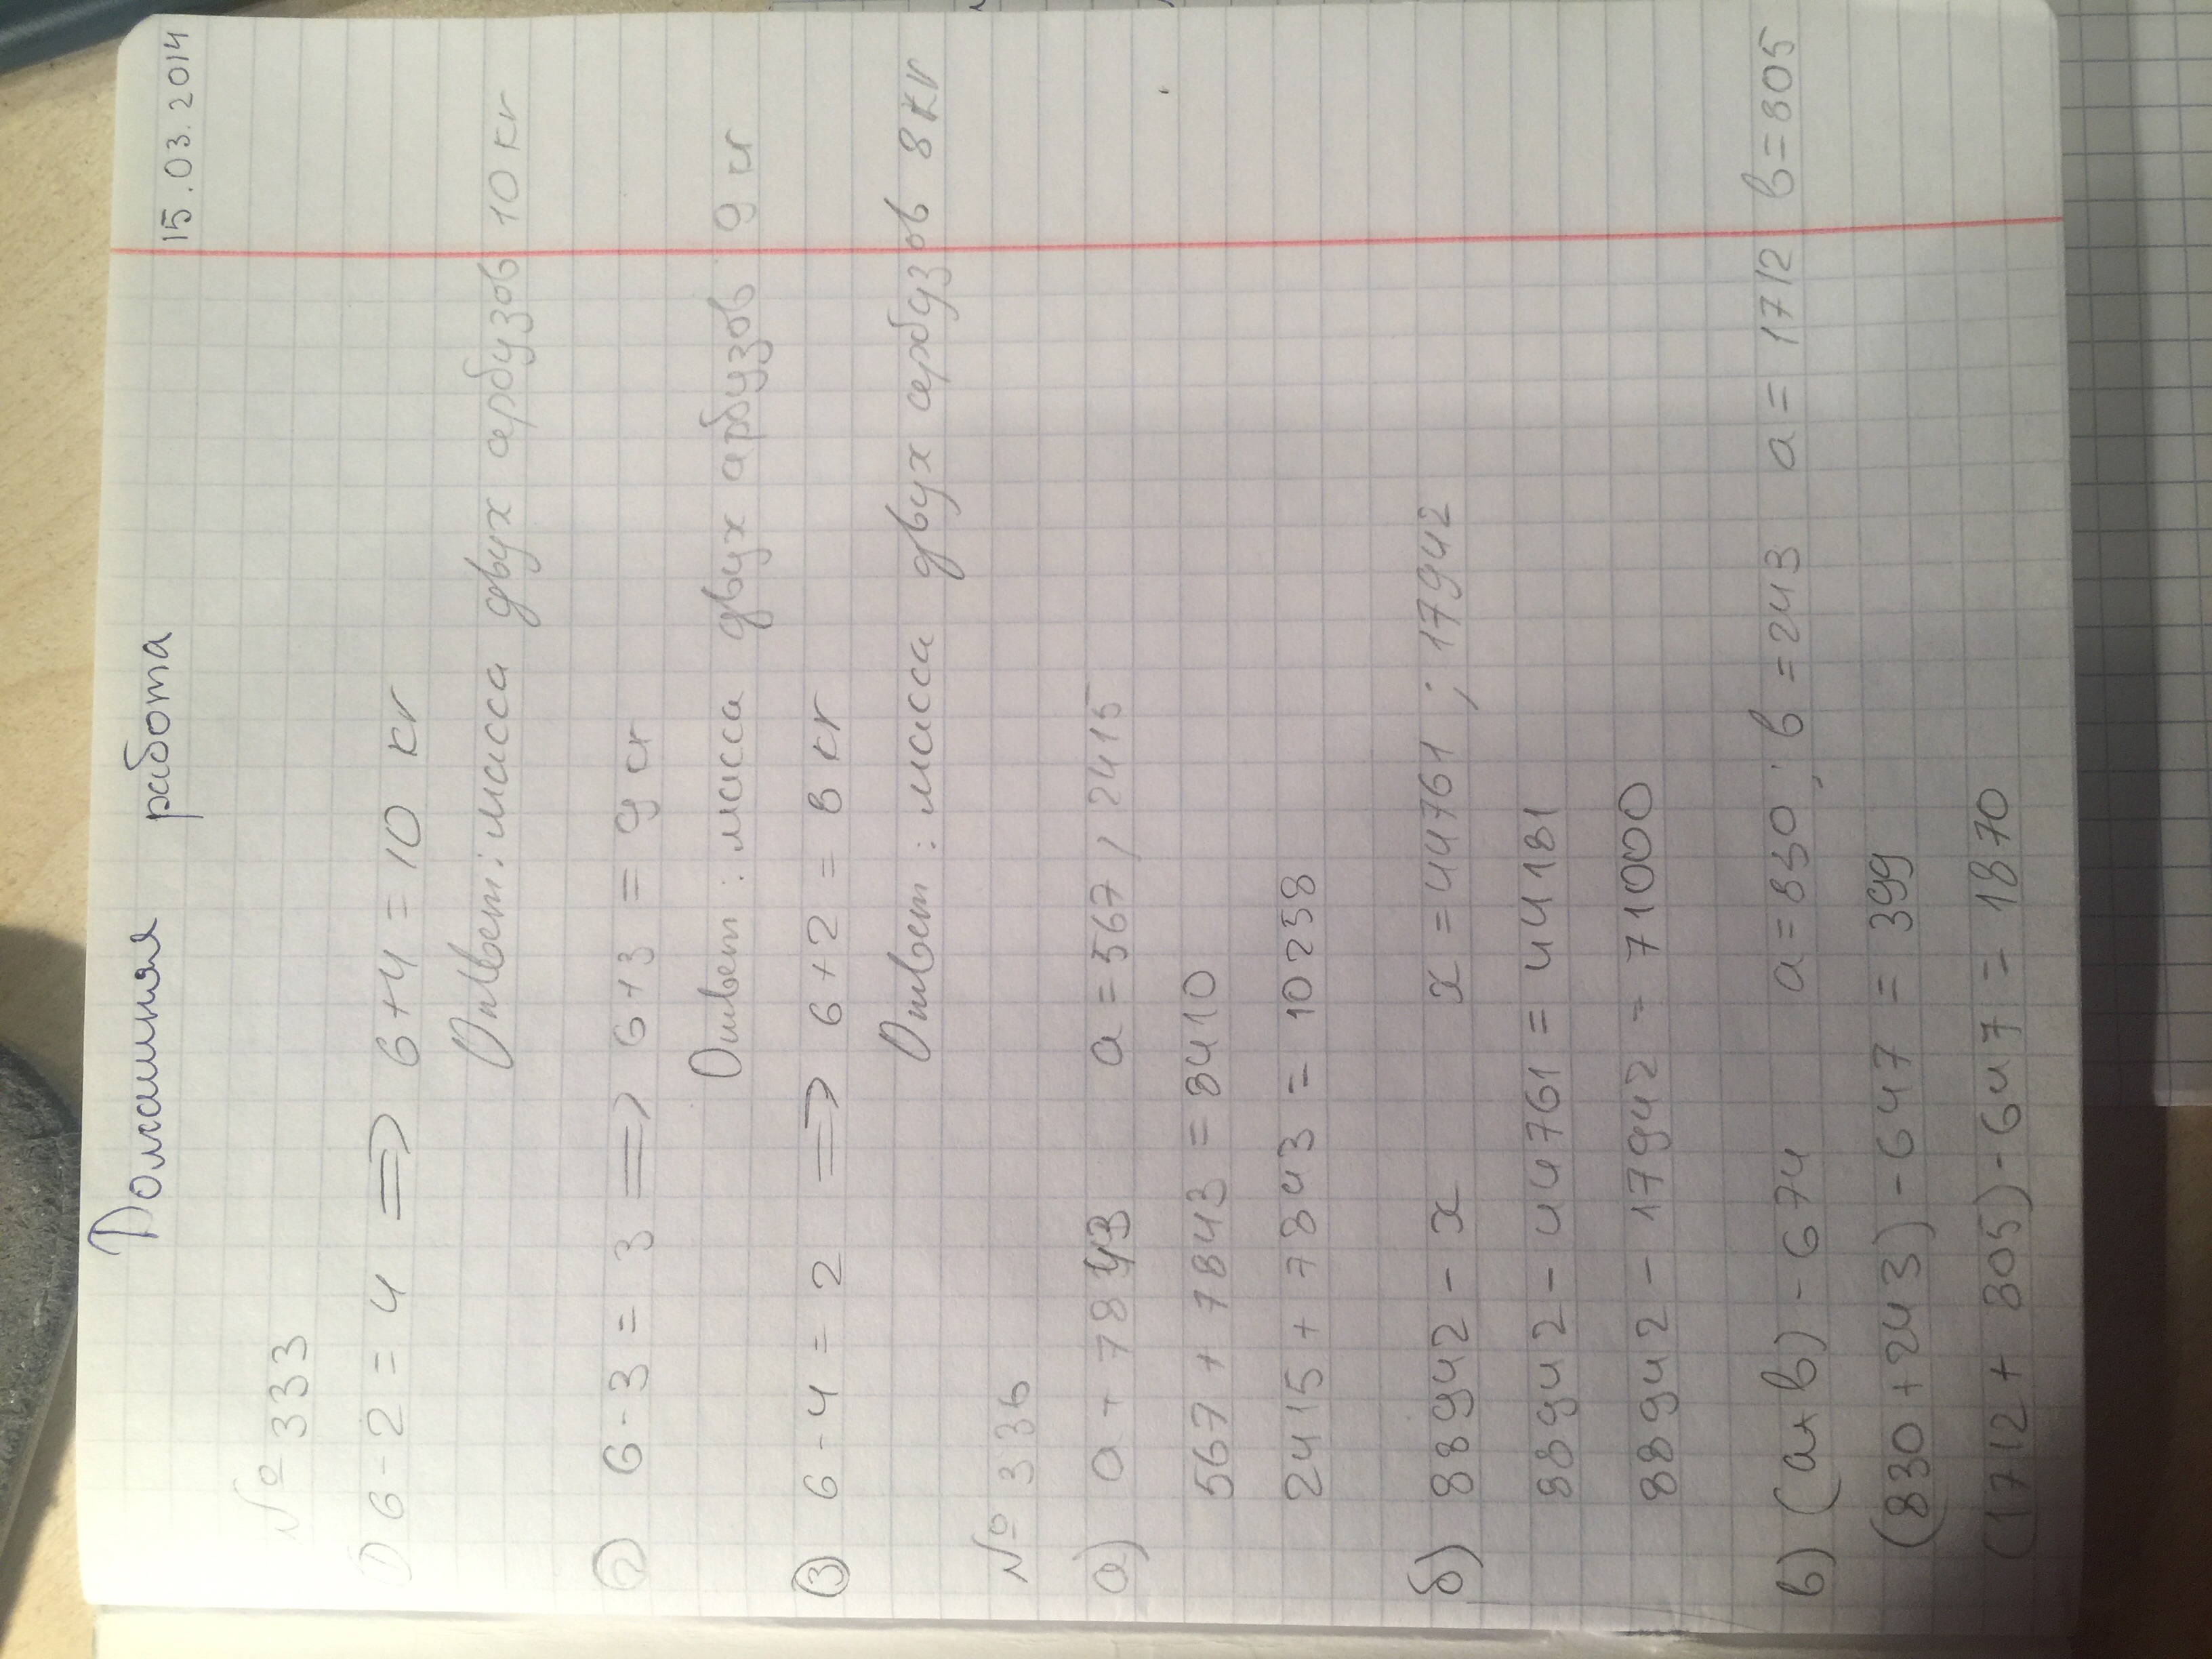 15.03.2014
Домашняя работа
№ 333
① 6-2=4 ⟹ 6+4=10 кг
Ответ: масса двух арбузов 10 кг
② 6-3=3 ⟹ 6+3=9 кг
Ответ: масса двух арбузов 9 кг
③ 6-4=2 ⟹ 6+2=8 кг
Ответ: масса двух арбузов 8 кг
№ 336
а) а + 7843 а=567; 2415
567 + 7843 = 8410
2415 + 7843 = 10258
б) 88942 - x x=44761; 17942
88942 - 44761 = 44181
88942 - 17942 = 71000
в) (а+в) - 674 а=830; в=243 а=1712 в=805
(830+243) - 647 = 399
(1712+805) - 647 = 1870